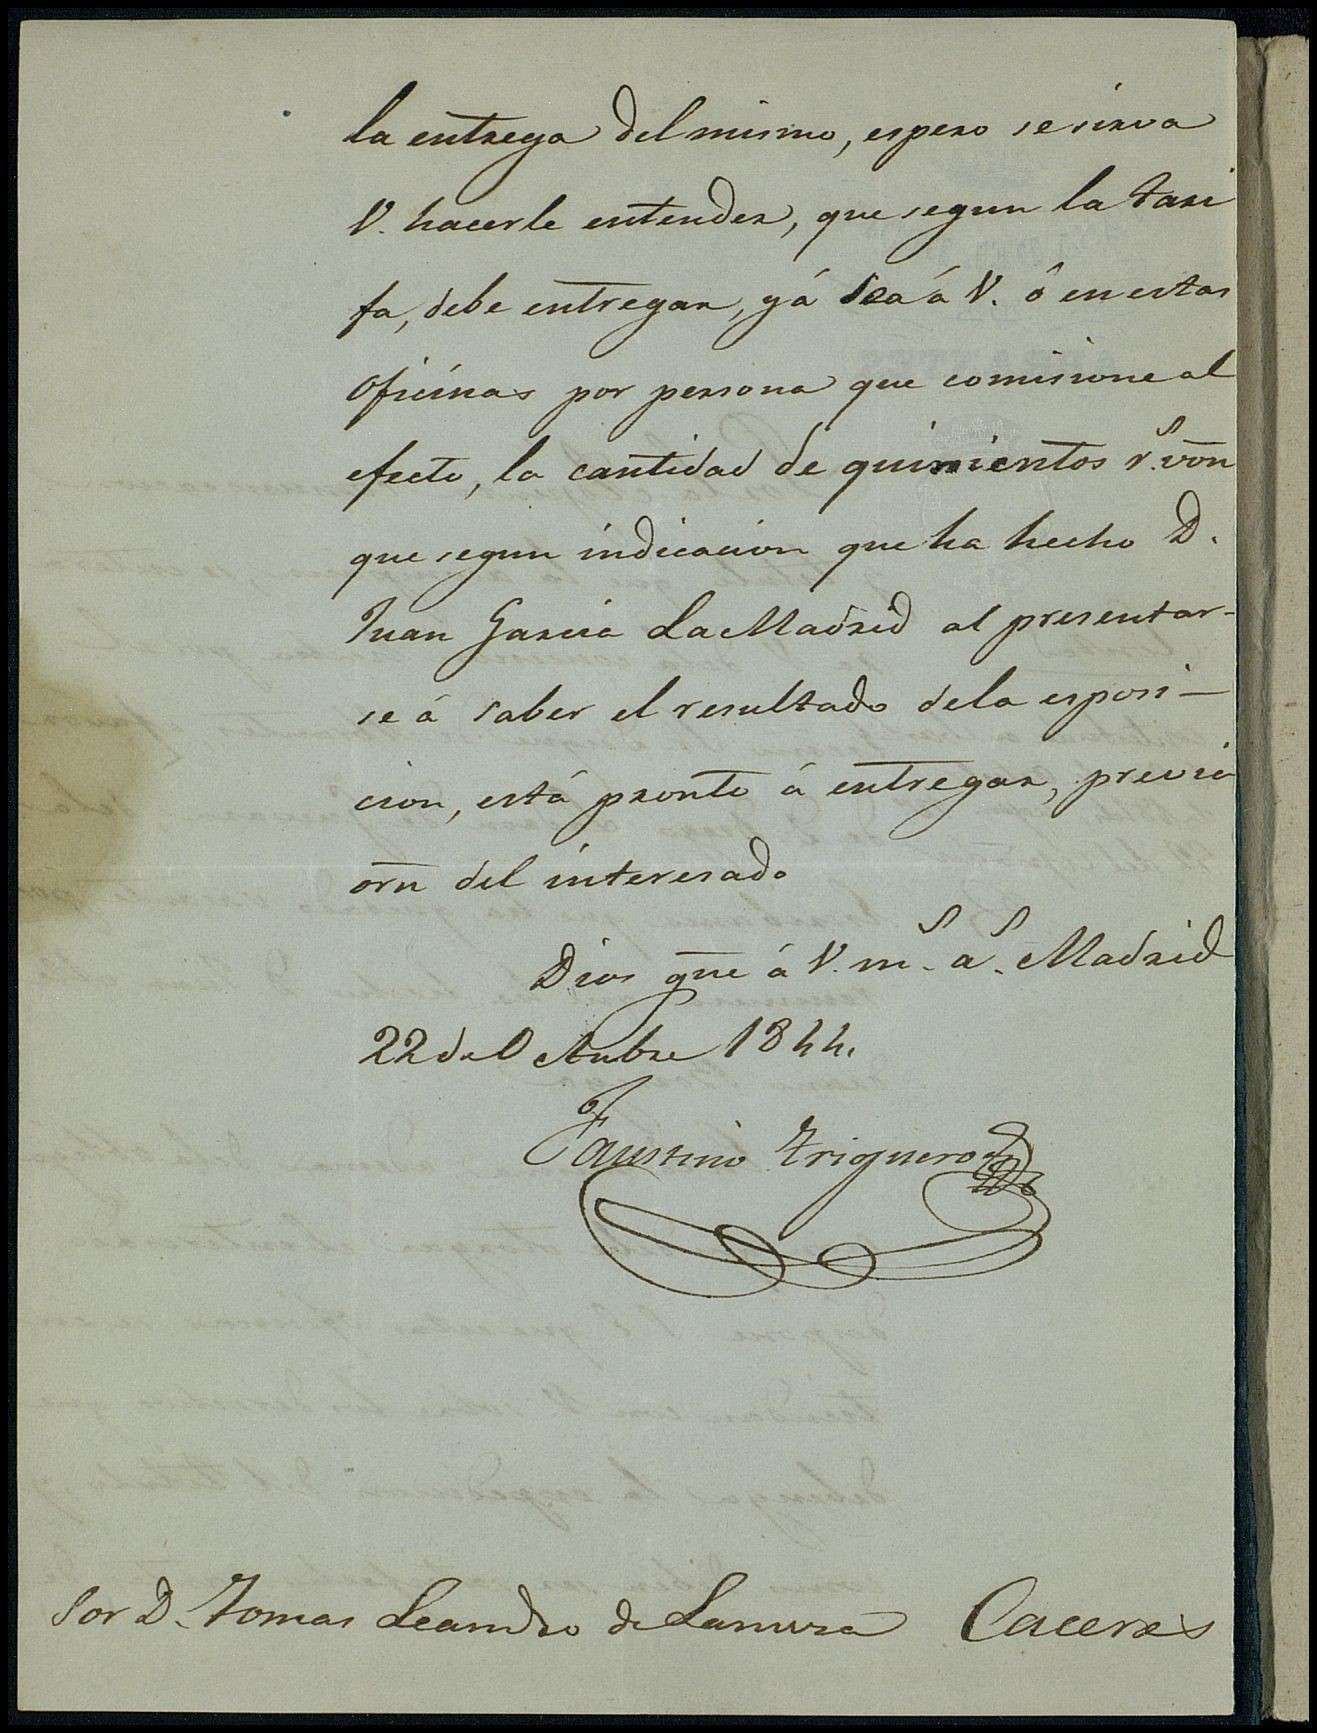 la entrega del mismo, espero se sirva
V. hacerle entender, que segun la tari
fa, debe entregar, yá sea á V. ó en estas
Oficinas por persona que comisione al
efecto, la cantidad de quinientos r.s von
que segun indicacion que ha hecho D.
Juan Garcia LaMadrid al presentar-
se á saber el resultado dela esposi-
cion, está pronto á entregar, previa
orn del interesado
Dios gue á V. m.s a.s Madrid
22 de Octubre 1844.
Faustino Trigueros
Sor D. Tomas Leandro de
Caceres